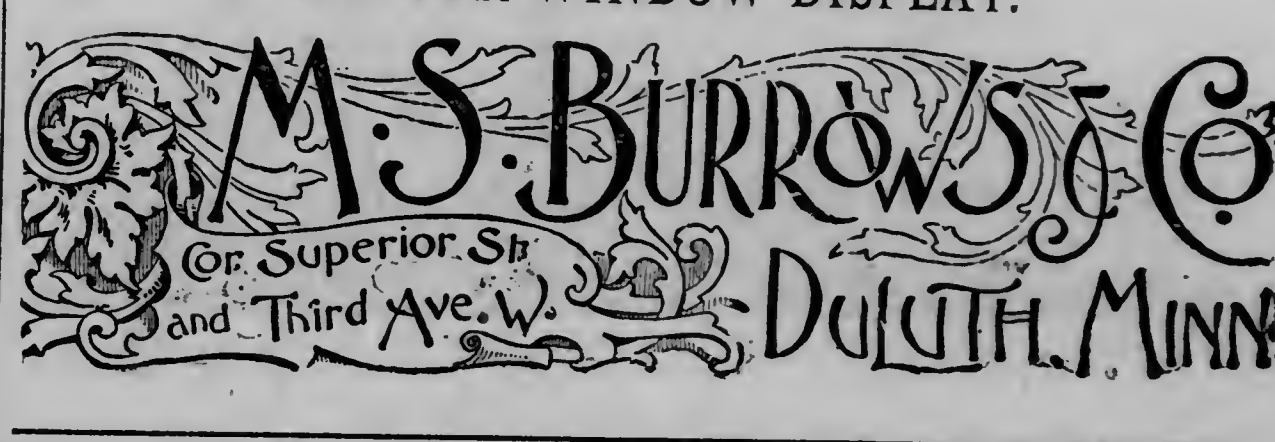 WINDOW DISPLAY.
M. S. BURROWS & CO.
Cor. Superior St.
and Third Ave. W.
DULUTH. MINN